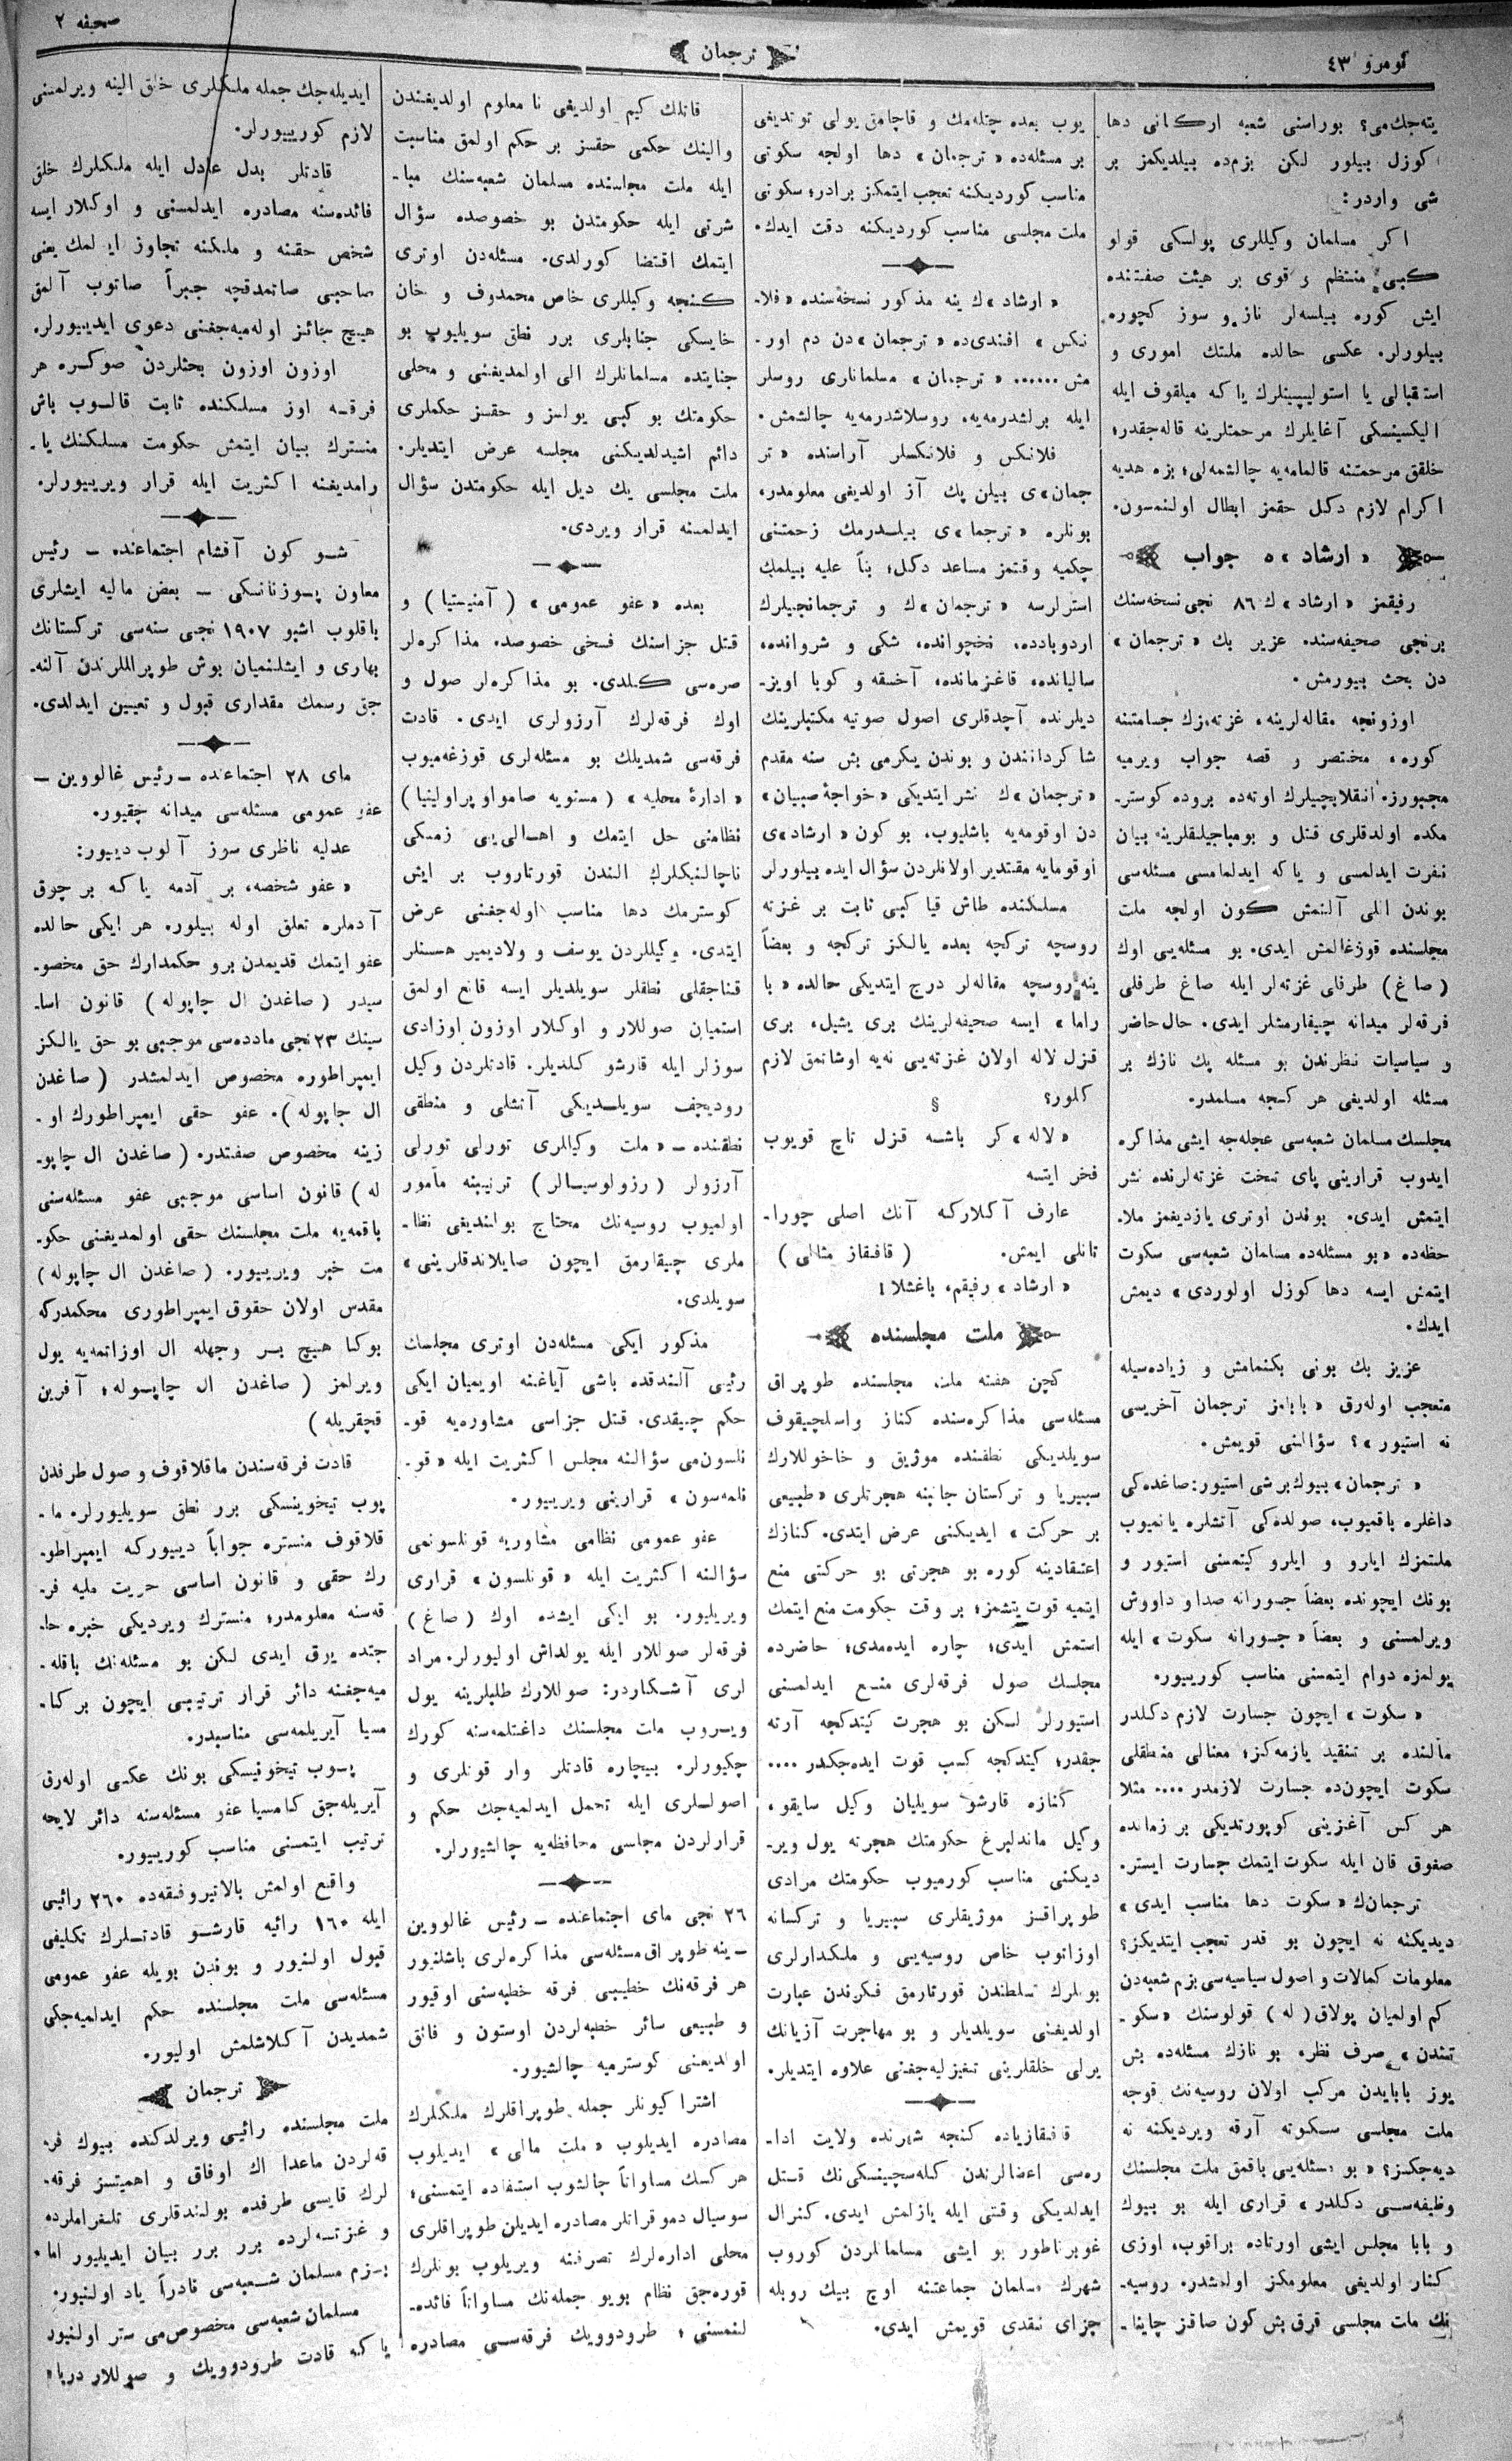 نومرو ٤٣
ترجمان
صحیفه ٢
یته‌جك‌می؟ بوراسنی شعبه ارکانی دها
کوزل بیلور لکن بزم‌ده بیلدیکمز بر
شی واردر:
اکر مسلمان وکیللری پولسکی قولو
کبی منتظم و قوی بر هیئت صفتنده
ایش کوره بیلسه‌لر ناز و سوز کچوره
بیلورلر. عکسی حالده ملتك اموری و
استقبالی یا استولیپینلرك یا که میلقوف ایله
الیکسینسکی آغایلرك مرحمتلرینه قاله‌جقدر؛
خلقق مرحمتنه قالمامه‌یه چالشمه‌لی؛ بزه هدیه
اکرام لازم دکل حقمز ابطال اولنمسون.
« ارشاد » ه جواب
رفیقمز « ارشاد » ك ٨٦ نجی نسخه‌سنك
برنجی صحیفه‌سنده عزیر بك « ترجمان »
دن بحث بیورمش.
اوزونجه مقاله‌لرینه، غزته‌مزك جسامتنه
کوره، مختصر و قصه جواب ویرمیه
مجبورز. انقلابچیلرك اوته‌ده بروده کوستر-
مکده اولدقلری قتل و بومباجیلیقلرینه بیان
نفرت ایدلمسی و یا که ایدلمامسی مسئله‌سی
بوندن اللی آلتمش کون اولجه ملت
مجلسنده قوزغالمش ایدی. بو مسئله‌یی اوك
(صاغ) طرفلی غزته‌لر ایله صاغ طرفلی
فرقه‌لر میدانه چیقارمشلر ایدی. حال حاضر
و سیاسیات نظرندن بو مسئله پك نازك بر
مسئله اولدیغی هر کسجه مسلمدر.
مجلسك مسلمان شعبه‌سی عجله‌جه ایشی مذاکره
ایدوب قرارینی پای تخت غزته‌لرنده نشر
ایتمش ایدی. بوندن اوتری یازدیغمز ملا-
حظه‌ده «بو مسئله‌ده مسلمان شعبه‌سی سکوت
ایتمش ایسه دها کوزل اولوردی» دیمش
ایدك.
عزیز بك بونی بکنمامش و زیاده‌سیله
متعجب اوله‌رق «بابامز ترجمان آخریسی
نه استیور»؟ سؤالنی قویمش.
« ترجمان» بیوك برشی استیور: صاغده‌کی
داغلره باقمیوب، صولده‌کی آتشلره یانمیوب
ملتمزك ایلرو و ایلرو کیتمسنی استیور و
بونك ایچونده بعضاً جسورانه صدا و داووش
ویرلمسنی و بعضاً «جسورانه سکوت» ایله
یولمزه دوام ایتمسنی مناسب کورییور.
« سکوت » ایچون جسارت لازم دکلدر
مألنده بر تنقید یازمه‌کز؛ معنالی منطقلی
سکوت ایچون‌ده جسارت لازمدر.... مثلا
هر کس آغزینی کوپورتدیکی بر زمانده
صفوق قان ایله سکوت ایتمك جسارت ایستر.
ترجمان‌ك «سکوت دها مناسب ایدی»
دیدیکنه نه ایچون بو قدر تعجب ایتدیکز؟
معلومات کمالات و اصول سیاسیه‌سی بزم شعبه‌دن
کم اولمیان پولاق (له) قولوسنك «سکو-
تندن» صرف نظر، بو نازك مسئله‌ده بش
یوز بابایدن مرکب اولان روسیه‌نك قوجه
ملت مجلسی سکوته آرقه ویردیکنه نه
دیه‌جکسز؟ «بو مسئله‌یی باقمق ملت مجلسنك
وظیفه‌سی دکلدر» قراری ایله بو بیوك
و بابا مجلس ایشی اورتاده براقوب، اوزی
کنار اولدیغی معلومکز اولمشدر. روسیه-
نك ملت مجلسی قرق بش کون صاقز چاینا-
یوب بعده چتله‌مك و قاچامق یولی توتدیغی
بر مسئله‌ده «ترجمان» دها اولجه سکوتی
مناسب کوردیکنه تعجب ایتمکز برادر؛ سکوتی
ملت مجلسی مناسب کوردیکنه دقت ایدك.
« ارشاد» ك ینه مذکور نسخه‌سنده «فلا-
نکس» افندی‌ده «ترجمان» دن دم اور-
مش...... « ترجمان» مسلمانلری روسلر
ایله برلشدرمه‌یه، روسلاشدرمه‌یه چالشمش.
فلانکس و فلانکسلر آراسنده «تر
جمان» ی بیلن پك آز اولدیغی معلومدر،
بونلره «ترجما» ی بیلدرمك زحمتنی
چکمیه وقتمز مساعد دکل؛ بناً علیه بیلمك
استرلرسه «ترجمان» ك و ترجمانجیلرك
اردوبادده، نخچوانده، شکی و شروانده،
سالیانده، قاغزمانده، آخسقه و کوبا اویز-
دیلرنده آچدقلری اصول صوتیه مکتبلرینك
شاکردانندن و بوندن یکرمی بش سنه مقدم
«ترجمان» ك نشر ایتدیکی «خواجهٔ صبیان»
دن اوقومه‌یه باشلیوب، بو کون «ارشاد» ی
اوقومایه مقتدر اولانلردن سؤال ایده بیلورلر
مسلکنده طاش قیا کبی ثابت بر غزته
روسچه ترکچه بعده یالکز ترکجه و بعضاً
ینه روسچه مقاله‌لر درج ایتدیکی حالده «با
راما» ایسه صحیفه‌لرینك بری یشیل، بری
قزل لاله اولان غزته‌یی نه‌یه اوشاتمق لازم
کلور؟
§
« لاله » کر باشه قزل تاج قویوب
فخر ایتسه
عارف آکلارکه آنك اصلی چورا-
تانلی ایمش. (قافقاز مثالی)
« ارشاد» رفیقم، باغشلا!
ملت مجلسنده
کچن هفته ملت مجلسنده طوپراق
مسئله‌سی مذاکره‌سنده کناز واسلچیقوف
سویلدیکی نطقنده موژیق و خاخوللارك
سیبیریا و ترکستان جانبنه هجرتلری «طبیعی
بر حرکت» ایدیکنی عرض ایتدی. کنازك
اعتقادینه کوره بو هجرتی بو حرکتی منع
ایتمیه قوت یتشمز؛ بر وقت حکومت منع ایتمك
استمش ایدی؛ چاره ایده‌مدی؛ حاضرده
مجلسك صول فرقه‌لری منع ایدلمسنی
استیورلر لکن بو هجرت کیتدکجه آرته
جقدر؛ کیتدکجه کسب قوت ایده‌جکدر....
کنازه قارشو سویلیان وکیل سایقو،
وکیل ماندلبرغ حکومتك هجرته یول ویر-
دیکنی مناسب کورمیوب حکومتك مرادی
طوپراقسز موژیقلری سیبیریا و ترکستانه
اوزاتوب خاص روسیه‌یی و ملکدارلری
بونلرك تسلطندن قورتارمق فکرندن عبارت
اولدیغنی سویلدیلر و بو مهاجرت آزیانك
یرلی خلقلرینی تنغیزلیه‌جغنی علاوه ایتدیلر.
قافقازیاده کنجه شهرنده ولایت ادا-
ره‌سی اعضالرندن کله‌سچینسکی‌نك قتل
ایدلدیکی وقتی ایله یازلمش ایدی. کنرال
غوبرناطور بو ایشی مسلمانلردن کوروب
شهرك مسلمان جماعتنه اوچ بیك روبله
جزای نقدی قویمش ایدی.
قاتلك کیم اولدیغی نا معلوم اولدیغندن
والینك حکمی حقسز بر حکم اولمق مناسبت
ایله ملت مجلسنده مسلمان شعبه‌سنك مبا-
شرتی ایله حکومتدن بو خصوصده سؤال
ایتمك اقتضا کورلدی. مسئله‌دن اوتری
کنجه وکیللری خاص محمدوف و خان
خایسکی جنابلری برر نطق سویلیوب بو
جنایتده مسلمانلرك الی اولمدیغنی و محلی
حکومتك بو کبی یولسز و حقسز حکملری
دائم اشیدلدیکنی مجلسه عرض ایتدیلر.
ملت مجلسی یك دیل ایله حکومتدن سؤال
ایدلمسنه قرار ویردی.
بعده «عفو عمومی» (آمنیستیا) و
قتل جزاسنك فسخی خصوصده مذاکره‌لر
صره‌سی کلدی. بو مذاکره‌لر صول و
اوك فرقه‌لرك آرزولری ایدی. قادت
فرقه‌سی شمدیلك بو مسئله‌لری قوزغه‌میوب
«ادارهٔ محلیه» (مستویه صامواوپراولینیا)
نظامنی حل ایتمك و اهالی‌یی زمسکی
ناچالنیکلرك الندن قورتاروب بر ایش
کوسترمك دها مناسب اوله‌جغنی عرض
ایتدی. وکیللردن یوسف و ولادیمیر هسنلر
قناجقلی نطقلر سویلدیلر ایسه قانع اولمق
استمیان صوللار و اوکلار اوزون اوزادی
سوزلر ایله قارشو کلدیلر. قادتلردن وکیل
رودیچف سویلدیکی آتشلی و منطقی
نطقنده - «ملت وکیللری تورلی تورلی
آرزولر (رزولوسیالر) ترتیبنه مأمور
اولمیوب روسیه‌نك محتاج بولندیغی نظا-
ملری چیقارمق ایچون صایلاندقلرینی»
سویلدی.
مذکور ایکی مسئله‌دن اوتری مجلسك
رئیی آلندقده باشی آیاغنه اویمیان ایکی
حکم چیقدی. قتل جزاسی مشاوره‌یه قو-
نلسون‌می سؤالنه مجلس اکثریت ایله «قو-
نلمه‌سون» قرارینی ویرییور.
عفو عمومی نظامی مشاوریه قونلسونمی
سؤالنه اکثریت ایله «قونلسون» قراری
ویریلیور. بو ایکی ایشده اوك (صاغ)
فرقه‌لر صوللار ایله یولداش اولیورلر. مراد
لری آشکاردر: صوللارك طلبلرینه یول
ویروب ملت مجلسنك داغتلمه‌سنه کورك
چکیورلر. بیچاره قادتلر وار قوتلری و
اصوللری ایله تحمل ایدلمیه‌جك حکم و
قرارلردن مجلسی محافظه‌یه چالشیورلر.
٢٦ نجی مای اجتماعنده - رئیس غالووین
- ینه طوپراق مسئله‌سی مذاکره‌لری باشلنیور
هر فرقه‌نك خطیبی فرقه خطبه‌سنی اوقیور
و طبیعی سائر خطبه‌لردن اوستون و فائق
اولدیغنی کوسترمیه چالشیور.
اشتراکیونلر جمله طوپراقلرك ملکلرك
مصادره ایدیلوب «ملت مالی» ایدیلوب
هر کسك مساواتاً چالشوب استفاده ایتمسنی؛
سوسیال دموقراتلر مصادره ایدیلن طوپراقلری
محلی اداره‌لرك تصرفنه ویریلوب بونلرك
قوره‌جق نظام بویو جمله‌نك مساواتاً فائده-
لنمسنی؛ طرودوویك فرقه‌سی مصادره
ایدیله‌جك جمله ملکلری خلق الینه ویرلمسنی
لازم کورییورلر.
قادتلر بدل عادل ایله ملکلرك خلق
فائده‌سنه مصادره ایدلمسنی و اوکلار ایسه
شخص حقنه و ملکنه تجاوز ایلمك یعنی
صاحبی صاتمدقچه جبراً صاتوب آلمق
هیچ جائز اوله‌میه‌جغنی دعوی ایدییورلر.
اوزون اوزون بحثلردن صوکره هر
فرقه اوز مسلکنده ثابت قالوب باش
منسترك بیان ایتمش حکومت مسلکنك یا-
رامدیغنه اکثریت ایله قرار ویرییورلر.
شو کون آقشام اجتماعنده - رئیس
معاون پوزنانسکی - بعض مالیه ایشلری
باقلوب اشبو ١٩٠٧ نجی سنه‌سی ترکستانك
بهاری و ایشلنمیان بوش طوپراللرندن آلنه-
جق رسمك مقداری قبول و تعیین ایدلدی.
مای ٢٨ اجتماعنده - رئیس غالووین -
عفو عمومی مسئله‌سی میدانه چقیور.
عدلیه ناظری سوز آلوب دییور:
« عفو شخصه، بر آدمه یا که بر چوق
آدملره تعلق اوله بیلور. هر ایکی حالده
عفو ایتمك قدیمدن برو حکمدارك حق مخصو-
سیدر (صاغدن ال چاپوله) قانون اسا-
سینك ٢٣ نجی مادده‌سی موجبی بو حق یالکز
ایمپراطوره مخصوص ایدلمشدر (صاغدن
ال چاپوله). عفو حقی ایمپراطورك او-
زینه مخصوص صفتدر. (صاغدن ال چاپو-
له) قانون اساسی موجبی عفو مسئله‌سنی
باقمه‌یه ملت مجلسنك حقی اولمدیغنی حکو-
مت خبر ویرییور. (صاغدن ال چاپوله)
مقدس اولان حقوق ایمپراطوری محکمدرکه
بوکا هیچ بر وجهله ال اوزاتمه‌یه یول
ویرلمز (صاغدن ال چاپوله؛ آفرین
قچقریله)
قادت فرقه‌سندن ماقلاقوف و صول طرفدن
پوپ تیخوینسکی برر نطق سویلیورلر. ما-
قلاقوف منستره جواباً دییورکه ایمپراطو-
رك حقی و قانون اساسی حریت ملیه فر-
قه‌سنه معلومدر؛ منسترك ویردیکی خبره حا-
جتده یوق ایدی لکن بو مسئله‌نك باقله-
میه‌جغنه دائر قرار ترتیبی ایچون بر کا-
مسیا آیریلمه‌سی مناسبدر.
پوپ تیخوینسکی بونك عکسی اوله‌رق
آیریله‌جق کامسیا عفو مسئله‌سنه دائر لایحه
ترتیب ایتمسنی مناسب کورییور.
واقع اولمش بالاتیروفقه‌ده ٢٦٠ رائیی
ایله ١٦٠ رائیه قارشو قادتلرك تکلیفی
قبول اولنیور و بوندن بویله عفو عمومی
مسئله‌سی ملت مجلسنده حکم ایدلمیه‌جکی
شمدیدن آکلاشلمش اولیور.
ترجمان
ملت مجلسنده رائیی ویرلدکده بیوك فر-
قه‌لردن ماعدا اك اوفاق و اهمیتسز فرقه-
لرك قایسی طرفده بولندقلری تلغراملرده
و غزته‌لرده برر برر بیان ایدیلیور اما
بزم مسلمان شعبه‌سی نادراً یاد اولنیور.
مسلمان شعبه‌سی مخصوص‌می ستر اولنیور
یا که قادت طرودوویك و صوللار دریا